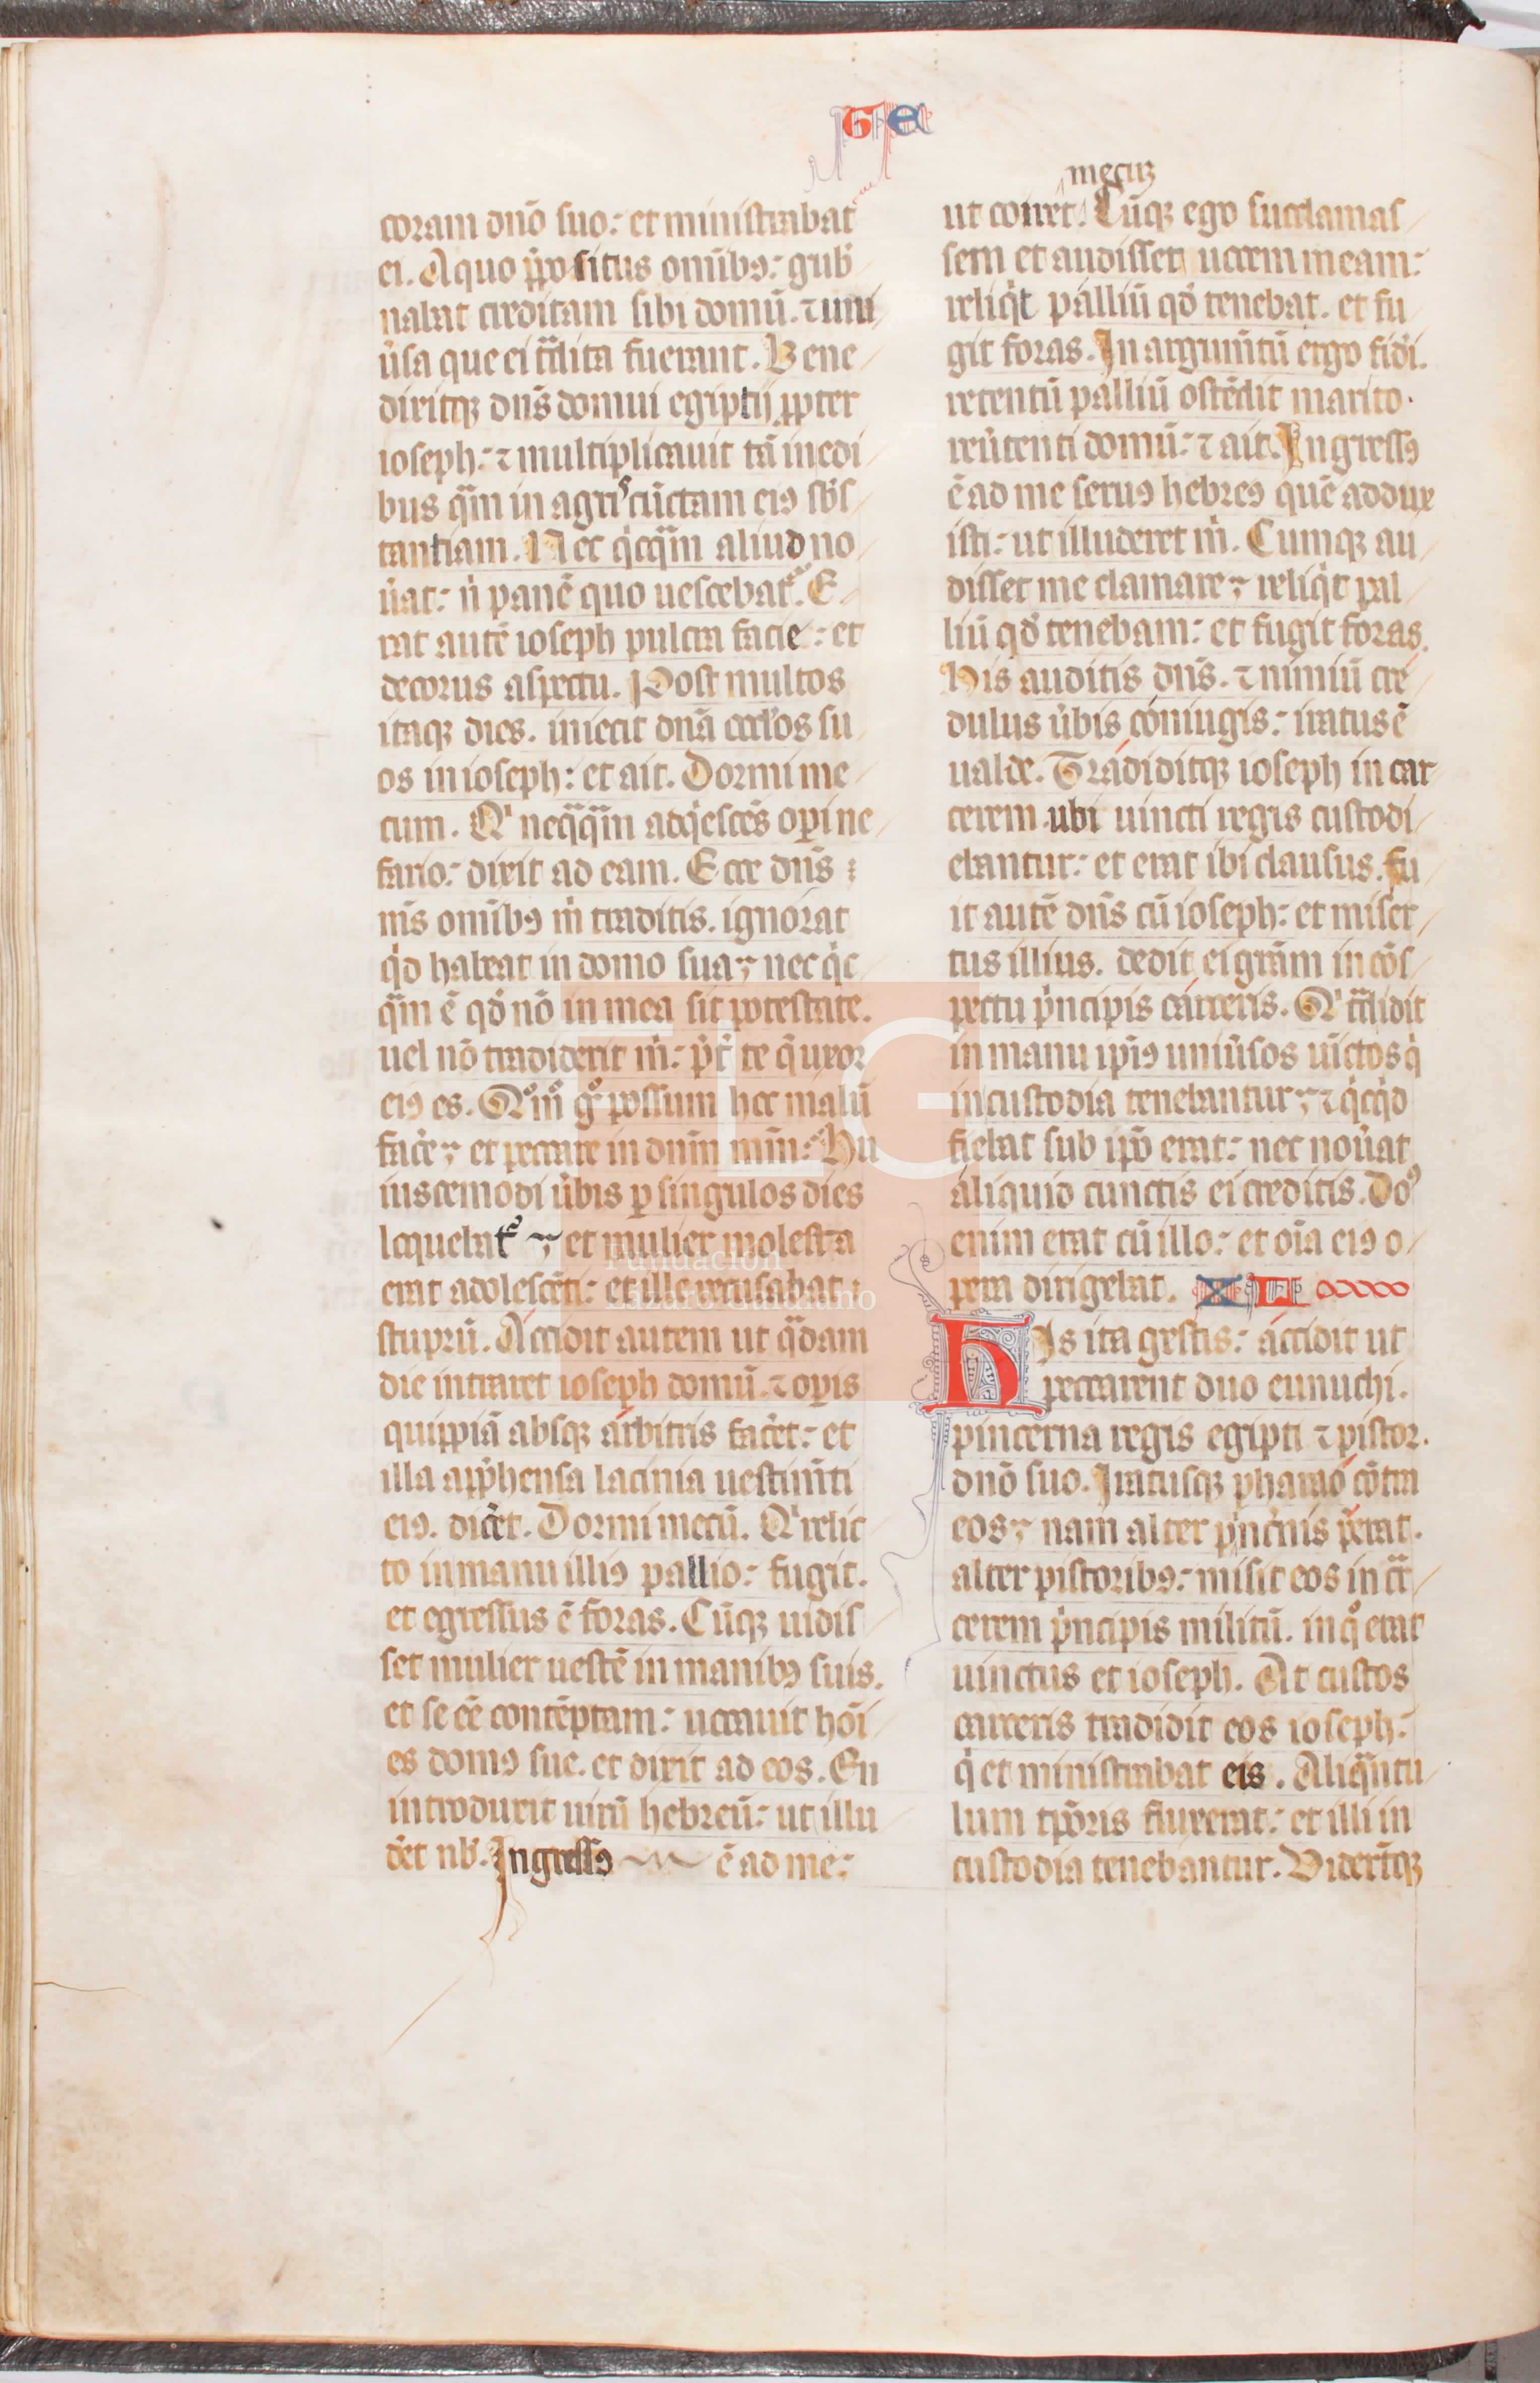 GE
coram dnō suo: et ministrabat
ei. A quo p̄positus omībꝯ: gub̄
nabat creditam sibi domū. ⁊ uni
ūsa que ei t̄dita fuerant. Bene
dixitqꝫ dns̄ domui egiptij ꝓpter
ioseph: ⁊ multiplicauit tā in edi
bus qm̄ in agris cūctam eiꝯ sb̄s
tantiam. Nec qͥcqm̄ aliud no
ūat: n̄ panē quo uescebat᷑. E
rat autē ioseph pulcra facie: et
decorus aspectu. Post multos
itaqꝫ dies. iniecit dnā occl̄os su
os in ioseph: et ait. Dormi me
cum. Qͥ neqq̄m adqͥescēs oꝑi ne
fario: dixit ad eam. Ecce dns̄
ms̄ omībꝯ m̄ traditis. ignorat
qͥd habeat in domo sua: nec qͥc
qm̄ ē qd̄ nō in mea sit potestate.
uel nō tradiderit m̄: p̄t̄ te q̄ uxor
eiꝯ es. Qͦmͦ gͦ possum hoc malū
facē: et peccare in dnm̄ mm̄: Hu
iuscemodi ūbis ꝑ singulos dies
loquebat᷑ et mulier molesta
erat adolescēti: et ille recusabat
stuprū. Accidit autem ut qͣdam
die intraret ioseph domū. ⁊ oꝑis
quippiā absqꝫ arbitris facēt: et
illa app̄hensa lacinia uestim̄ti
eiꝯ. dicēt. Dormi mecū. Qͥ relic
to in manu illiꝯ pallio: fugit.
et egressus ē foras. Cūqꝫ uidis
set mulier uestē in manibꝯ suis.
et se eē contēptam: uocauit hōi
es domꝯ sue. et dixit ad eos. En
introduxit uirū hebreū: ut illu
dēt nb̄. Ingressꝯ ē ad me:
mecuꝫ
ut coiret. Cūqꝫ ego succlamas
sem et audisset uocem meam:
reliqͥt palliū qd̄ tenebat. et fu
git foras. In argum̄tū ergo fid̄i.
retentū palliū ostēdit marito
reūtenti domū: ⁊ ait. Ingressꝯ
ē ad me seruꝯ hebreꝯ quē addux
isti: ut illuderet m̄. Cumqꝫ au
disset me clamare: reliqͥt pal
liū qd̄ tenebam: et fugit foras.
His auditis dns̄. ⁊ nimiū cre
dulus ūbis coniugis: iratus ē
ualde. Tradiditqꝫ ioseph in car
cerem ubi uincti regis custodi
ebantur: et erat ibi clausus. Fu
it autē dns̄ cū ioseph: et miser
tus illius. dedit ei grām in cōs
pectu pͥncipis carceris. Qͥ t̄didit
in manu ipīꝯ uniūsos uīctos qͥ
in custodia tenebantur: ⁊ qͥcqͥd
fiebat sub ipō erat: nec noūat
aliquid cunctis ei creditis. Doꝯ
enim erat cū illo: et oīa eiꝯ o
pera dirigebat. XL
His ita gestis: accidit ut
peccarent duo eunuchi.
pincerna regis egipti ⁊ pistor.
dnō suo. Iratusqꝫ pharao cōtra
eos: nam alter pͥncn̄is p̄erat.
alter pistoribꝯ: misit eos in cr̄
cerem pͥncipis militū. in qͦ erat
uinctus et ioseph. At custos
carceris tradidit eos ioseph:
qͥ et ministrabat eis. Aliqn̄tu
lum tꝑōris fluxerat: et illi in
custodia tenebantur. Viderūtqꝫ